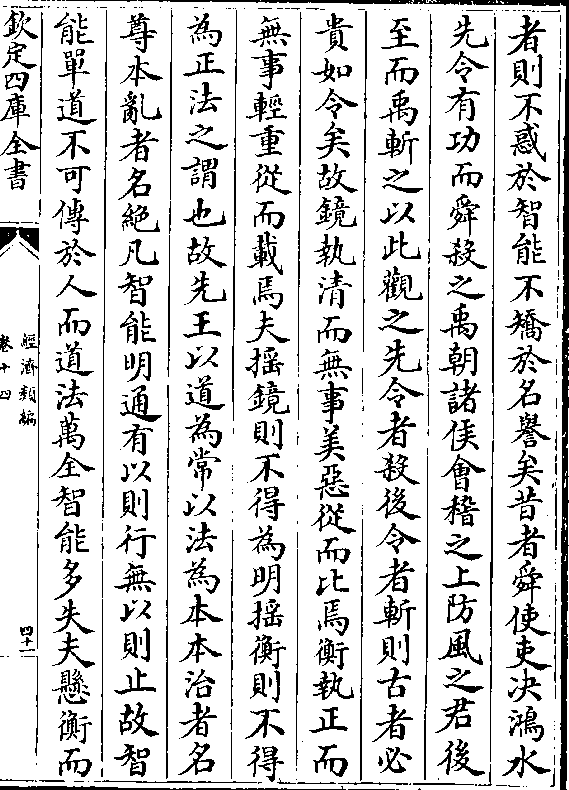 者則不惑於智能不矯於名譽矣昔者舜使吏决鴻水
先令有功而舜殺之禹朝諸侯會稽之上防風之君後
至而禹斬之以此觀之先令者殺後令者斬則古者必
貴如令矣故鏡執清而無事美惡從而比焉衡執正而
無事輕重從而載焉夫揺鏡則不得為明揺衡則不得
為正法之謂也故先王以道為常以法為本本治者名
尊本亂者名絶凡智能明通有以則行無以則止故智
能單道不可傳於人而道法萬全智能多失夫懸衡而
欽定四庫全書
經濟類編
卷十四
四十二